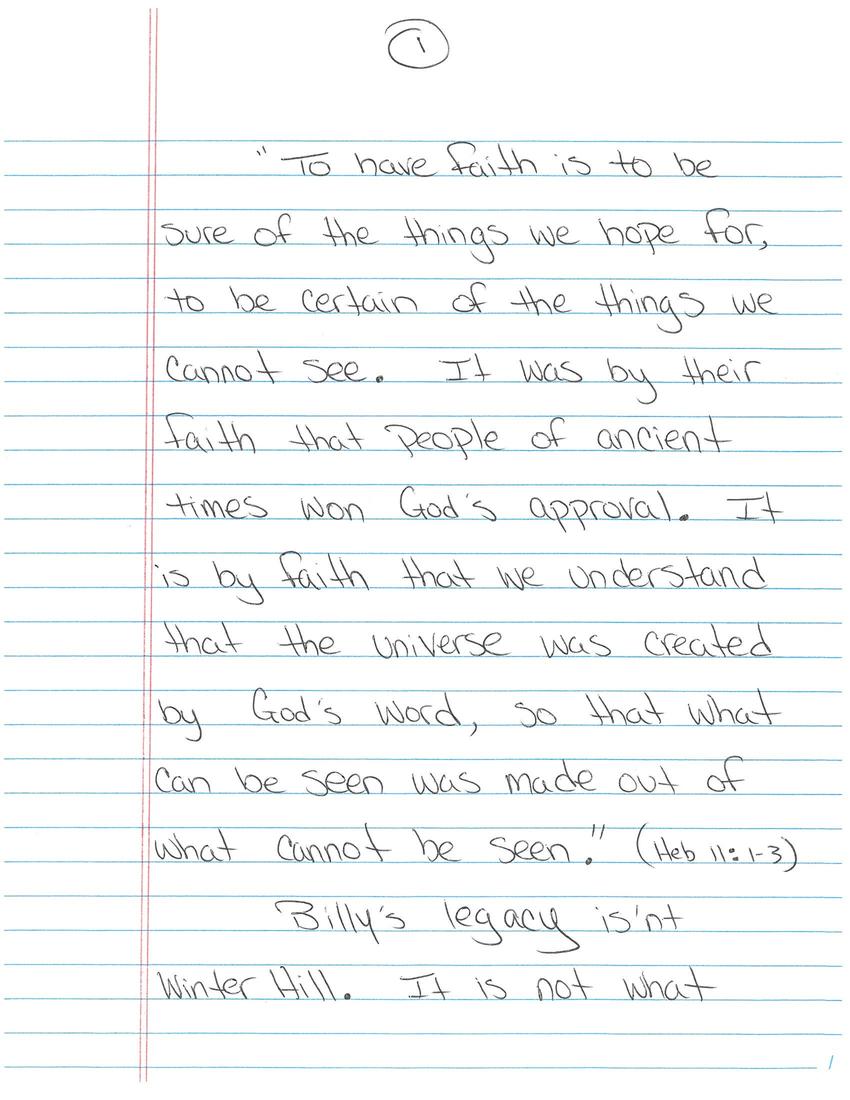 1
" To have faith is to be
sure of the things we hope for,
to be certain of the things we
cannot see. It was by their
faith that people of ancient
times won God's approval. It
is by faith that we understand
that the universe was created
by God's word, so that what
can be seen was made out of
what cannot be seen." (Heb 11:1-3)
Billy's legacy is'nt
Winter Hill. It is not what
1